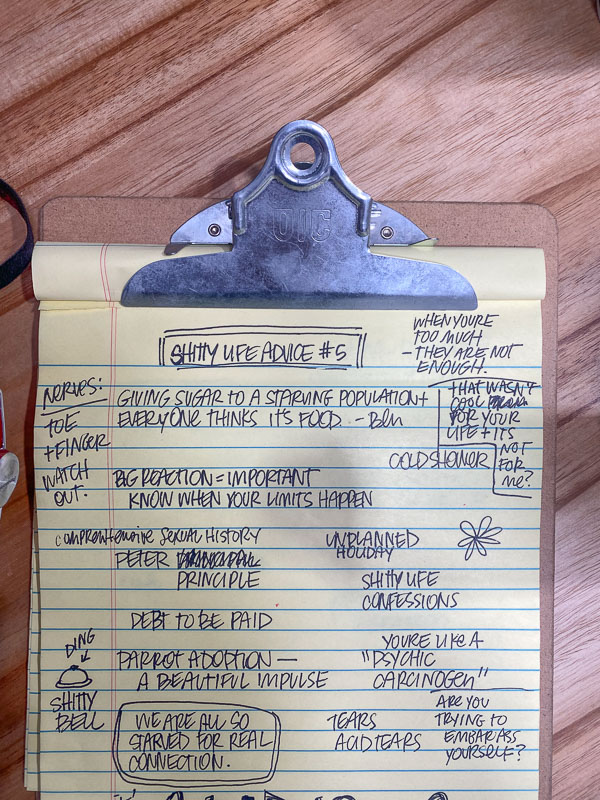 OIC
SHITTY LIFE ADVICE #5
WHEN YOU'RE
TOO MUCH
- THEY ARE NOT
ENOUGH.
NERVES:
TOE
+ FINGER
WATCH
OUT.
GIVING SUGAR TO A STARVING POPULATION +
EVERYONE THINKS IT'S FOOD - Ben
THAT WASN'T
COOL
FOR YOUR
LIFE + ITS
NOT
FOR
me?
COLD SHOWER
BIG REACTION = IMPORTANT
KNOW WHEN YOUR LIMITS HAPPEN
comprehensive Sexual HISTORY
UNPLANNED
HOLIDAY
PETER
PRINCIPLE
SHITTY LIFE
CONFESSIONS
DEBT TO BE PAID
DING
SHITTY
BELL
PARROT ADOPTION —
A BEAUTIFUL IMPULSE
YOU'RE LIKE A
"PSYCHIC
CARCINOGEN"
WE ARE ALL SO
STARVED FOR REAL
CONNECTION.
TEARS
ACID TEARS
ARE YOU
TRYING TO
EMBARASS
YOURSELF?